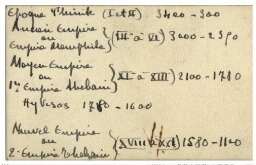 Epoque Thinite (I et II) 3400-300
Ancien Empire
ou (III à VI) 3000-2390
Empire Memphite
Moyen Empire
ou (XI à XIII) 2100-1780
1er Empire Thebain
Hyksos 1780-1600
Nouvel Empire
ou (XVIII à XXI) 1580-1100
2e Empire Thebain